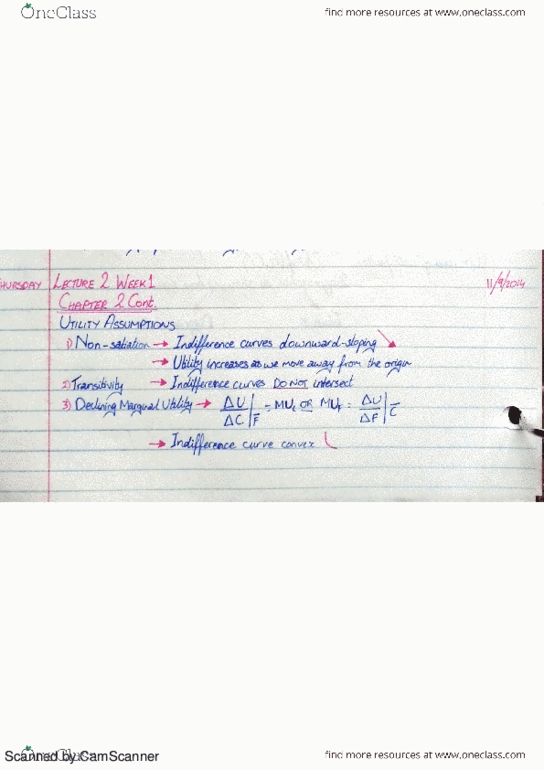 OneClass
find more resources at www.oneclass.com
THURSDAY LECTURE 2 WEEK 1 11/9/2014
CHAPTER 2 Cont.
UTILITY ASSUMPTIONS
1) Non-satiation → Indifference curves downward-sloping
→ Utility increases as we move away from the origin
2) Transitivity → Indifference curves DO NOT intersect
3) Declining Marginal Utility → ΔU/ΔC|F̅ = MUc OR MUF = ΔU/ΔF|C̅
→ Indifference curve convex
OneClass
Scanned by CamScanner
find more resources at www.oneclass.com